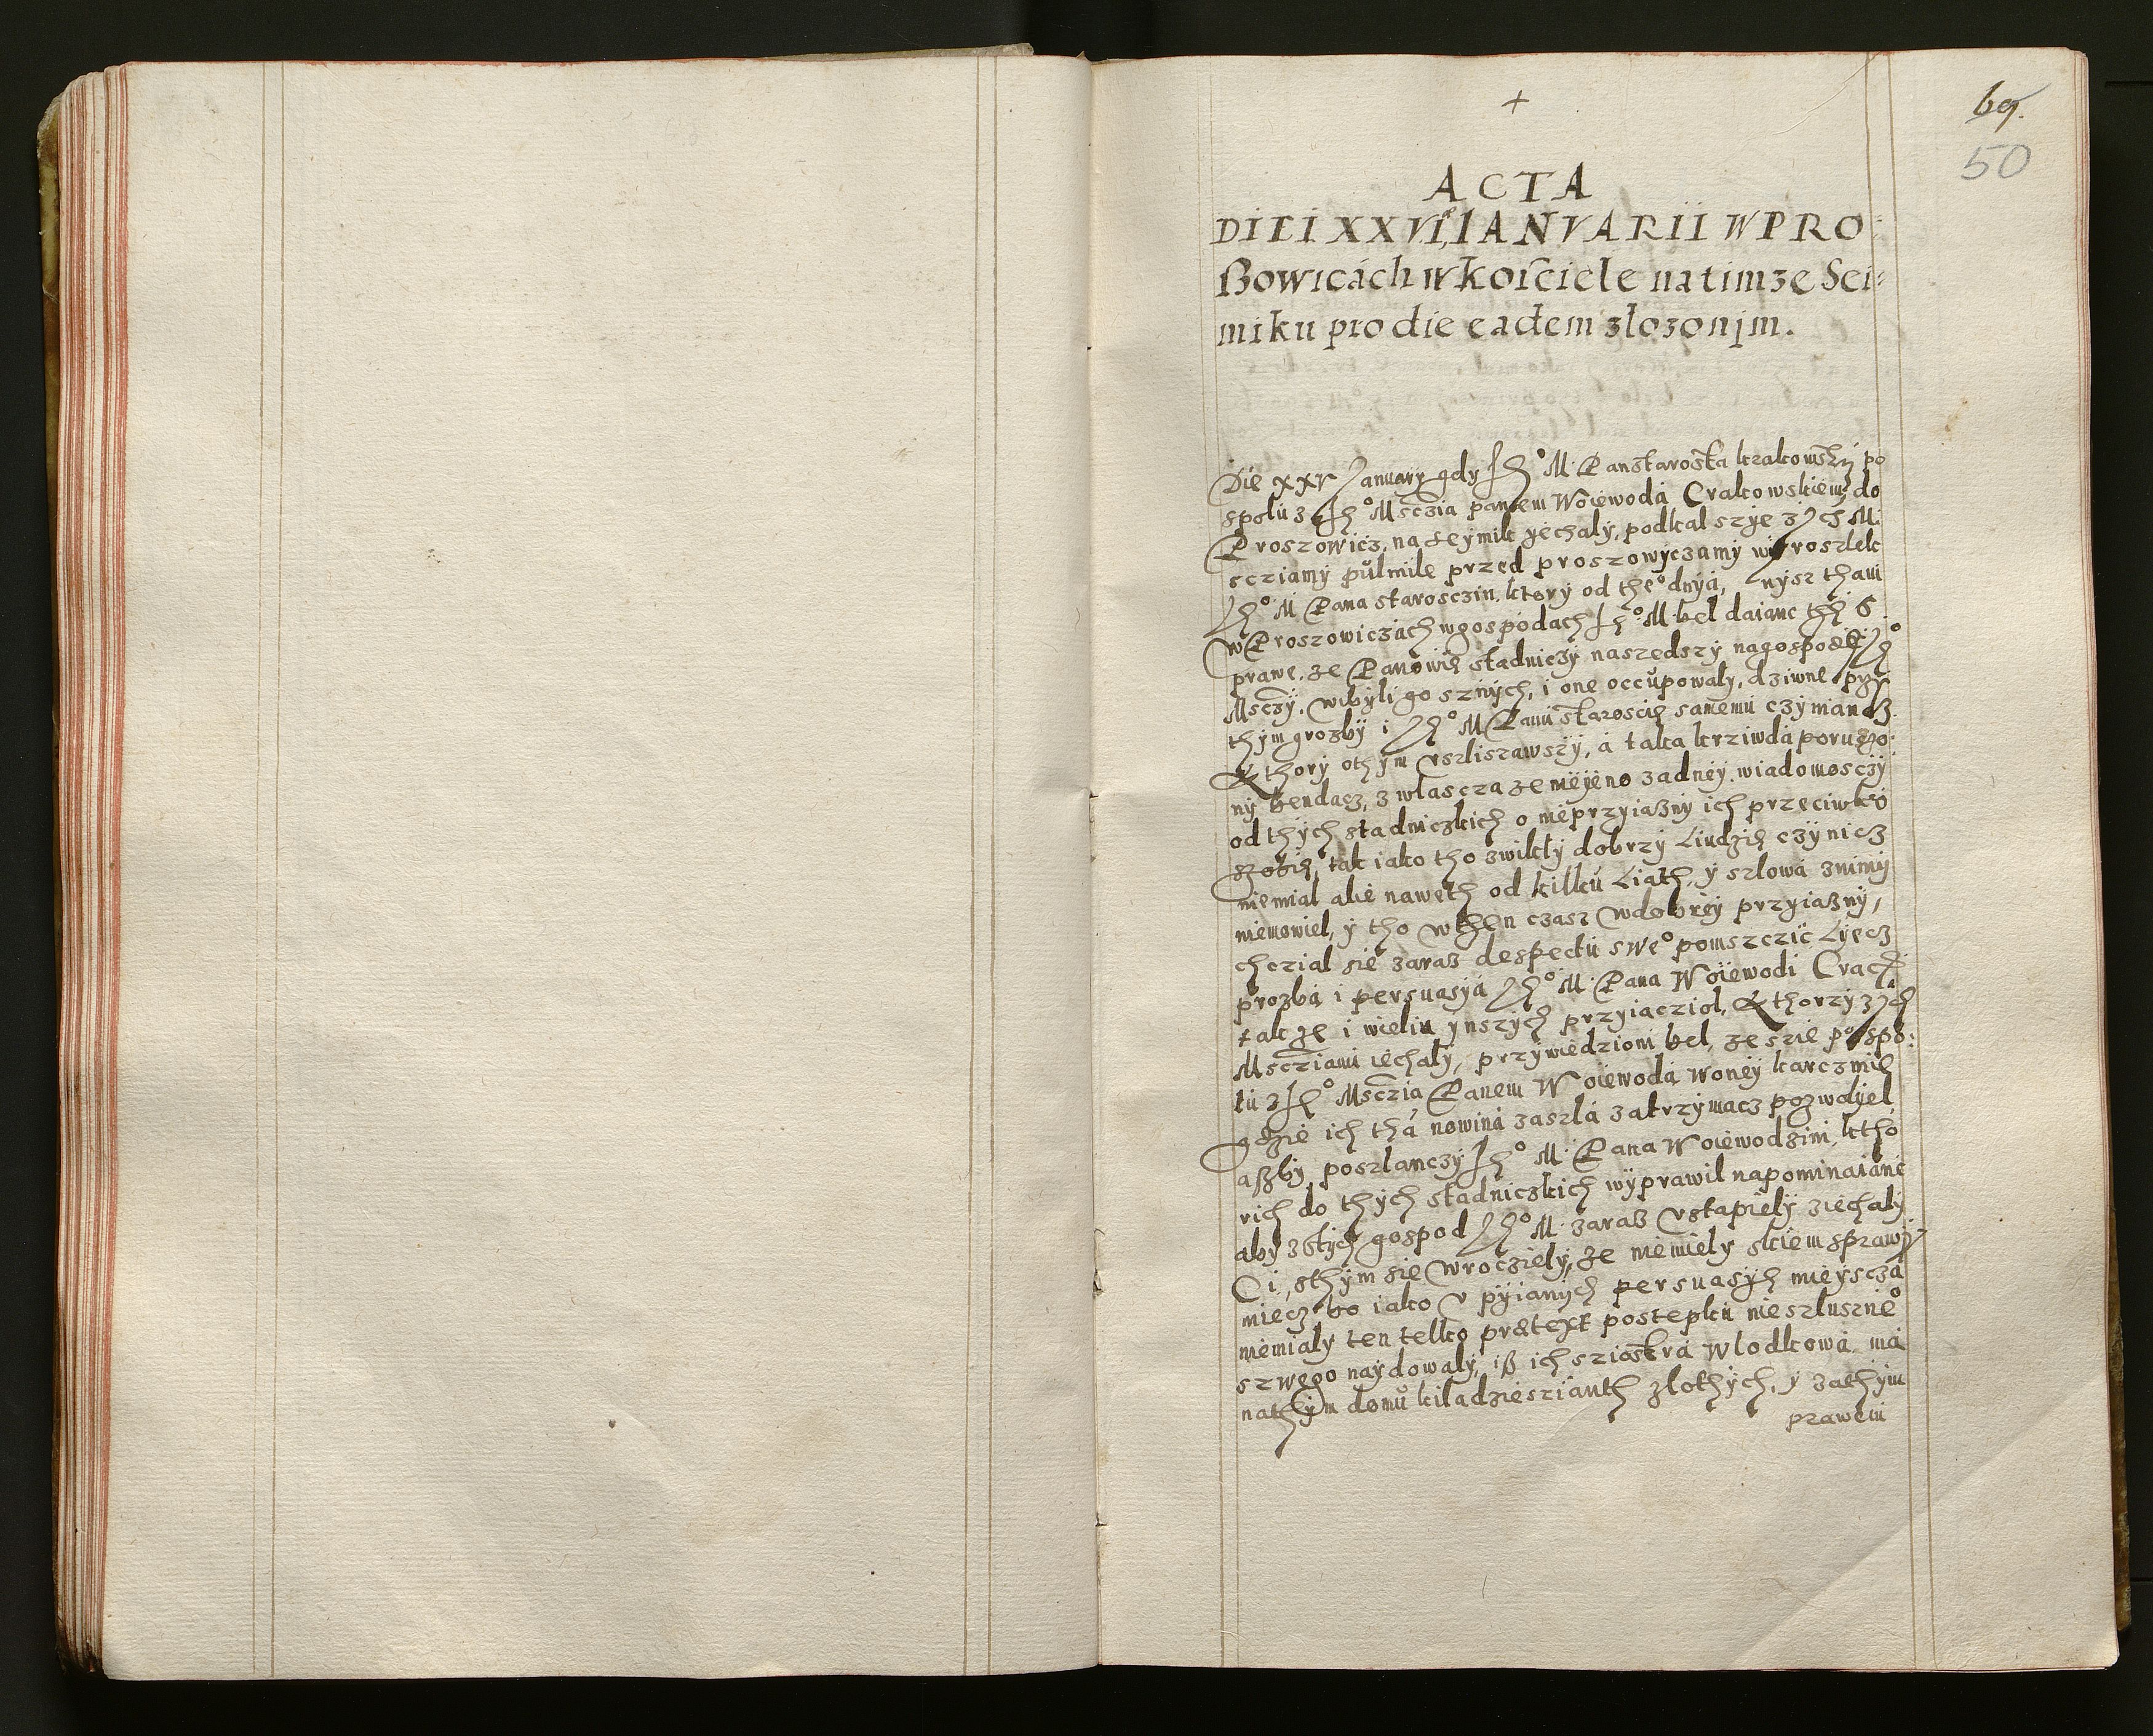 +
69.
50
ACTA
DIEI XXVI IANVARII W PRO=
ßowicách w kosciele na timze Sei=
miku pro die eadem zlozonjm.
Die XXV January gdy Je° M Pan starosta krakowskÿ po
spolu z Je° Msczia panem Woiewodá Crakowskiem do
Proszowicz, na seymik yechalÿ, podkal szÿe z M.
scziamÿ pulmile przed proszowÿczamÿ wÿroszlek
Je° M Pana starosczin, ktorÿ od the° dnÿá, nÿsz tham
w Proszowiczach w gospodach Je° M bel daianc
prawe, ze Panowie stadniczÿ naszedszÿ na gospode Je°
Msczÿ, wÿbÿli go sznÿch, i one occupowalÿ, dziwne przÿ
thÿm grozbÿ i Je° M Panu staroscie samemu czÿniancz.
Kthorÿ othÿm vszliszawszÿ, á taka krziwdá poruszo:
nÿ bendacz, zwlascza ze meÿeno zadnëÿ wiadomosczÿ
od thÿch stadniczkich o nieprzÿiaznÿ ich przeciwko
szobie, tak iako tho zwiklÿ dobrzÿ Liudzie czÿnicz
niemial alie naweth od kilku Liath, ÿ szlowá znimÿ
niemowiel, ÿ tho w then czasz w dobreÿ przÿiaznÿ,
chczial sie zaraz despectu swe° pomszczic Lÿecz
prozbá i persuasÿá Je° M. Pana Woiewodi Crac:
takze i wieliu ÿnszÿch przÿiacziol, Kthorzÿ z Jch
Mscziami iechalÿ, przÿwiedzioni bel, ze szie pospo:
lu z Je° Msczia Panem Woiewoda w oneÿ karczmie
gdzie ich thá nowiná zaszla zatrzÿmacz pozwolÿel,
aszbÿ poszlanczÿ Je° M. Pana Woiewodzini, ktho
rich do thÿch stadniczkich wÿprawil napominaianc
abÿ z tÿch gospod Je° M. zaraz vstapielÿ ziechalÿ
Ci, sthÿm sie wroczielÿ, ze niemielÿ skiem sprawÿ
miecz bo iako v pÿianÿch persuasÿe mieÿsczá
niemialÿ ten telko prætext postepku nieszlusznie°
szwego naÿdowalÿ, iß ich sziostrá Wlodkowá má
nathÿm domu kiladziesziantk zlothÿch, ÿ zathÿm
prawem